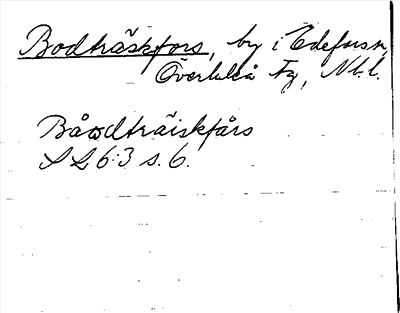 Bodträskfors, by i Edefors sn,
Överluleå fg, Nb.l.
Båodträiskfårs
SL 6:3 s. 6.